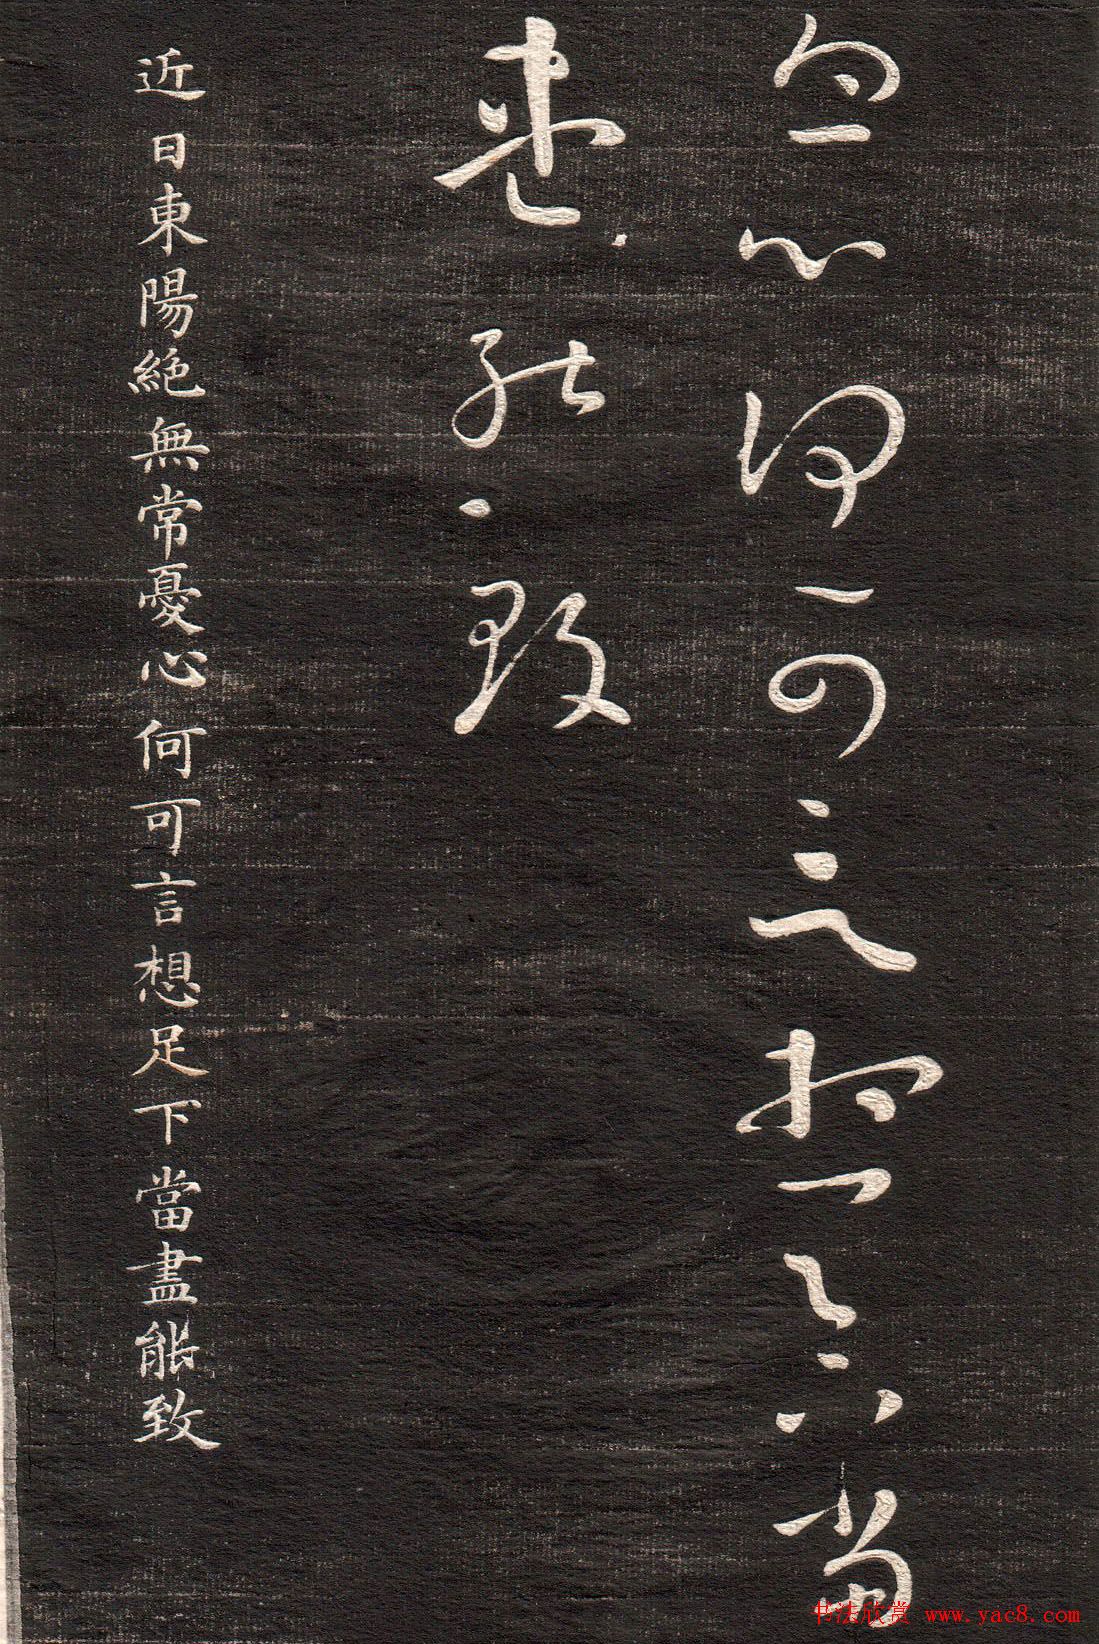 憂心何可言想足下當
盡能致
近日東陽絶無常憂心何可言想足下當盡能致
书法欣赏 www.yac8.com